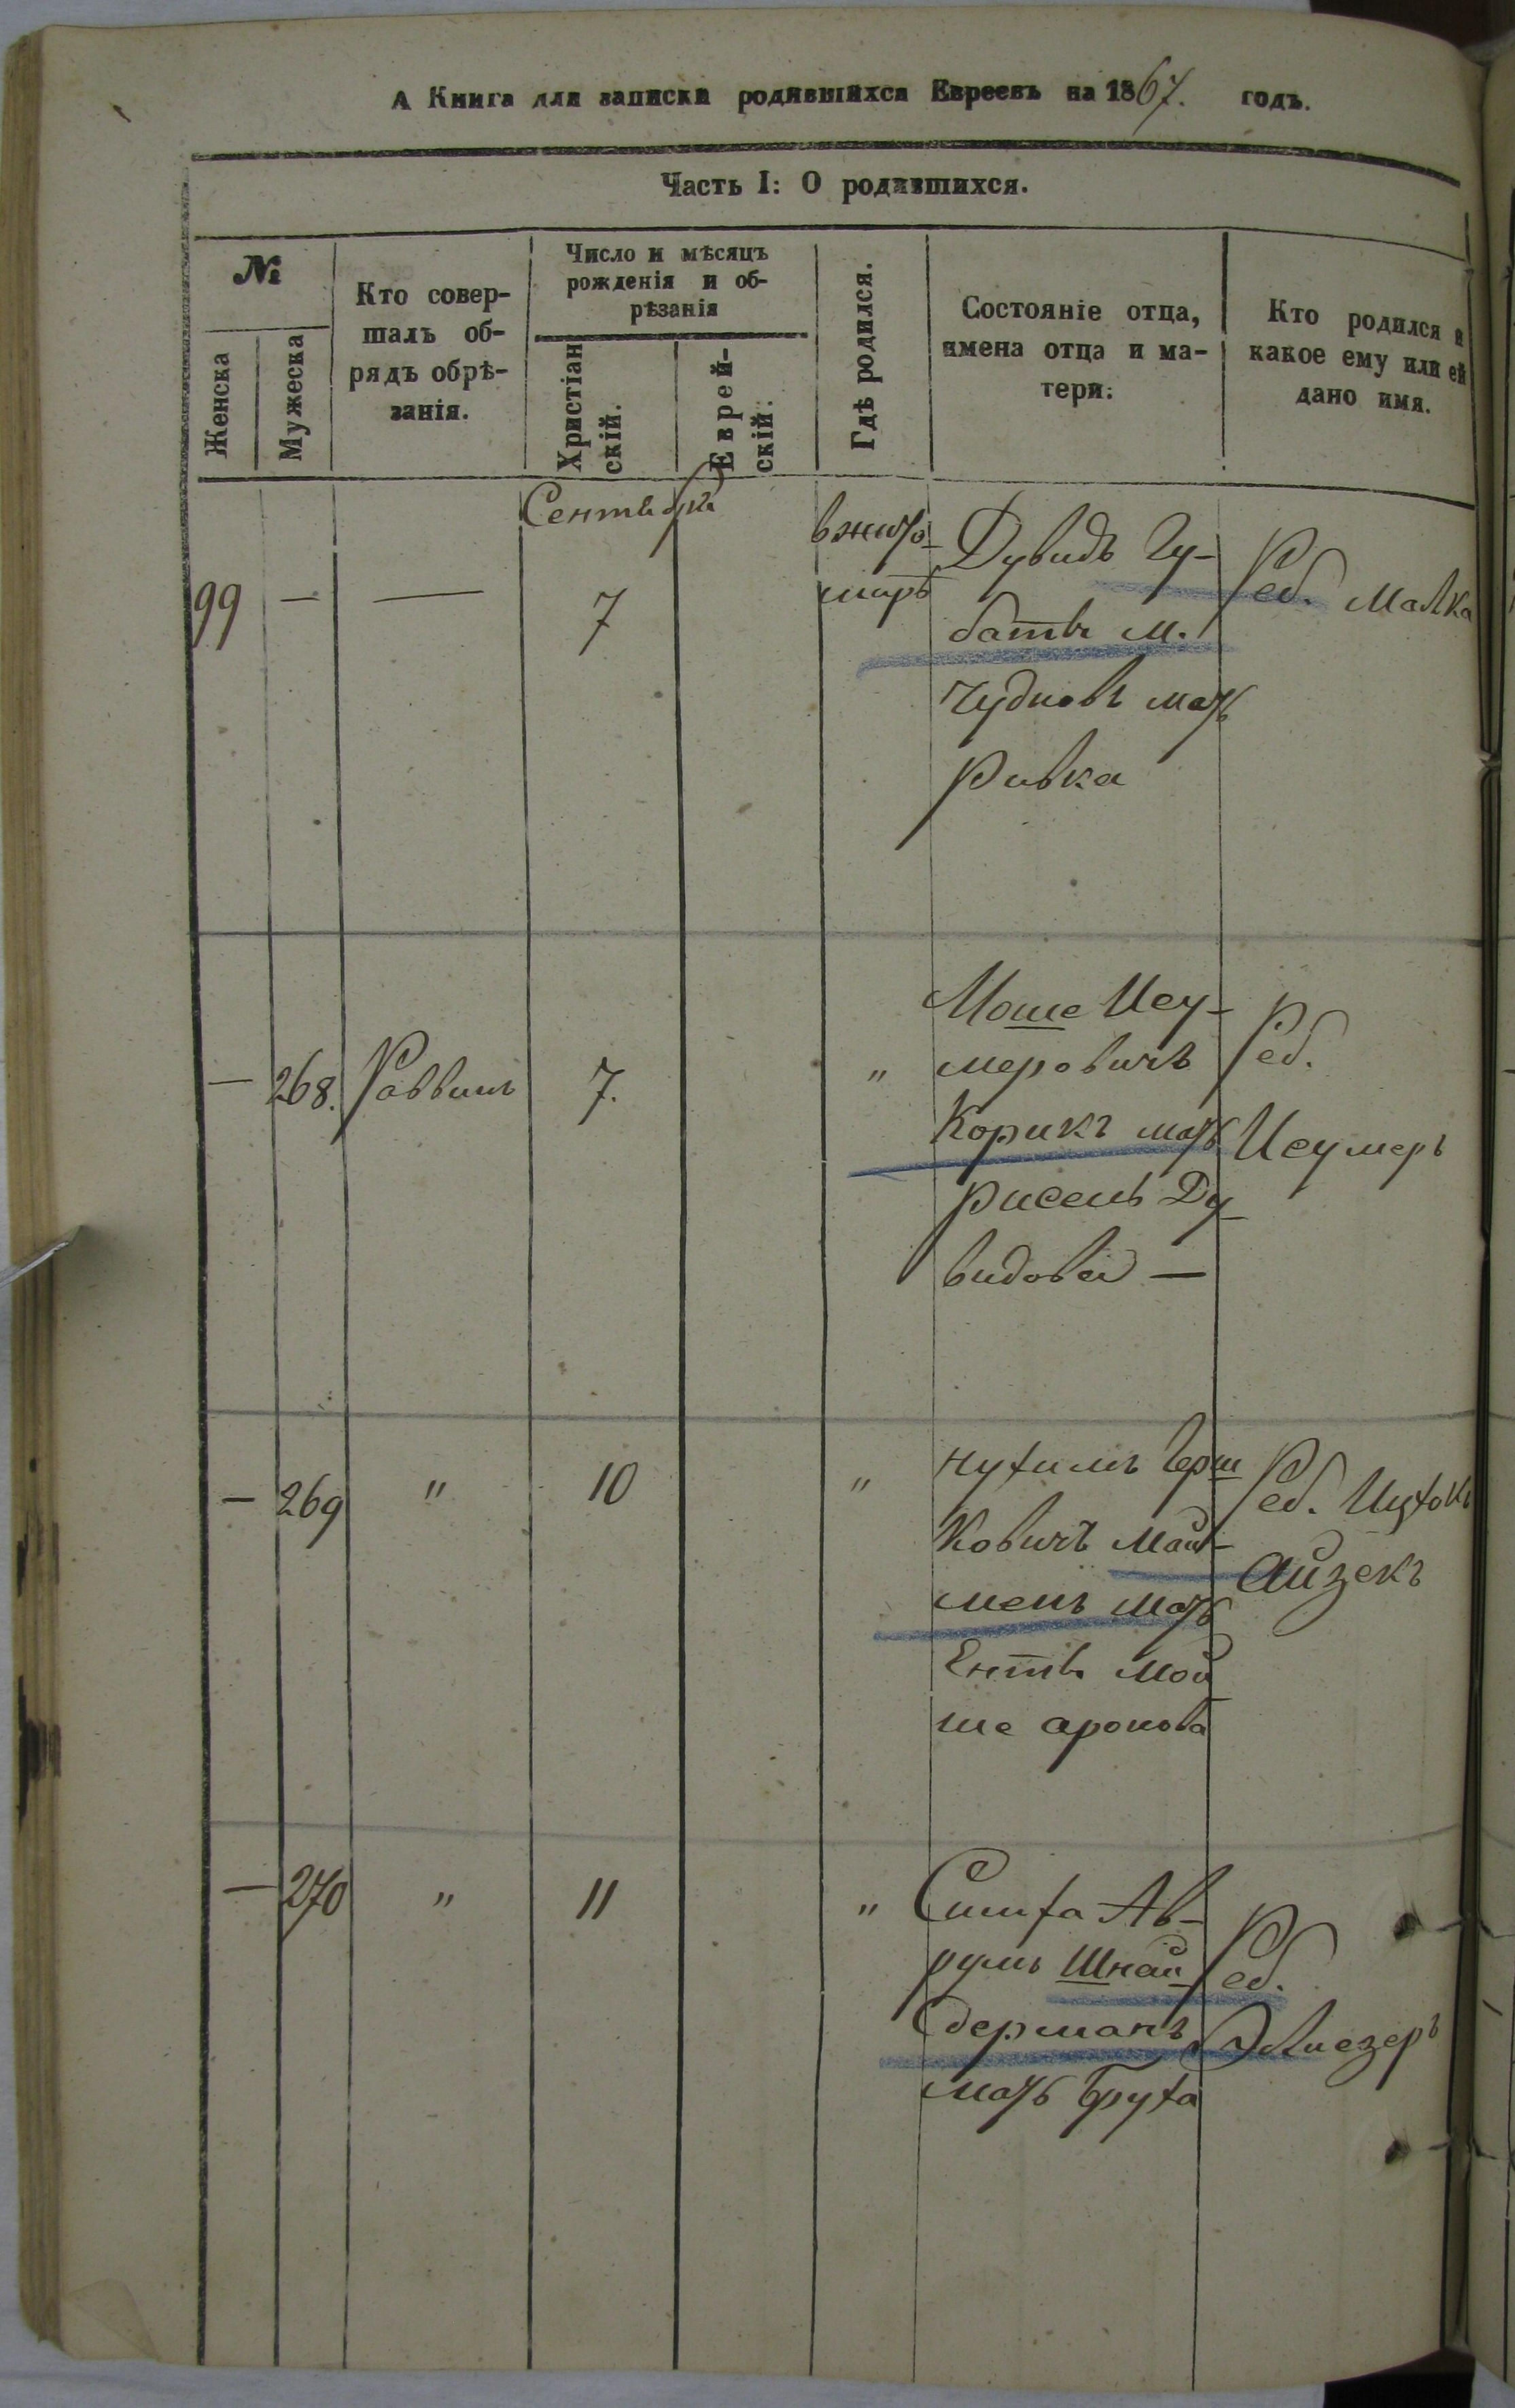 А Книга для записки родившихся Евреевъ на 1867. годъ.
Часть I: О родившихся.
№
Женска
Мужеска
Кто совер-
шалъ об-
рядъ обрѣ-
занія.
Число и мѣсяцъ
рожденія и об-
рѣзанія
Христіан
скій.
Еврей-
скій.
Гдѣ родился.
Состояніе отца,
имена отца и ма-
тери.
Кто родился и
какое ему или ей
дано имя.
Сентября
99 — — 7
в жито-
мирѣ
Дувидъ Гу-
батъ м.
Чудновъ мать
Ривка
Реб. Малка
— 268. Раввинъ 7. "
Моше Иеу-
меровичъ
Корикъ мать
Рисель Ду-
видова —
Реб.
Иеумеръ
— 269 " 10 "
Нухимъ Герш
ковичъ Май-
менъ мать
Ентѣ Мой
ше аронова
Реб. Ицхокъ
Айзекъ
— 270 " 11 "
Симха Ав-
румъ Шнай-
дерманъ
мать Бруха
Реб.
Элиезеръ